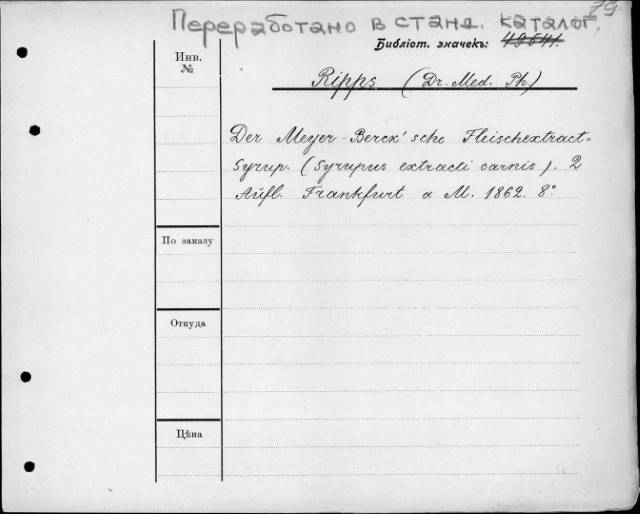 Переработано в станд. каталог.
79.
Библіот. значекъ: 49541.
Инв.
№
Ripps (Dr. Med. Ph.)
Der Meyer-Berck'sche Fleischextract=
Syrup. (Syrupus extracti carnis). 2
Aufl. Frankfurt a M. 1862. 8°
По заказу
Откуда
Цѣна